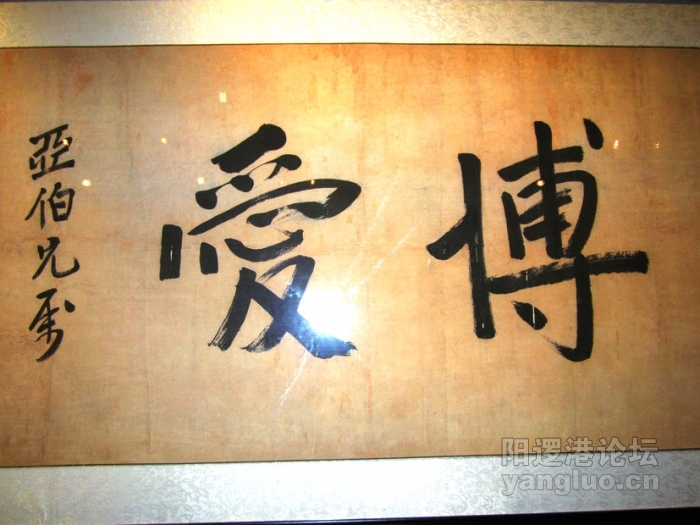 博愛
亞伯兄属
阳逻港论坛
yangluo.cn